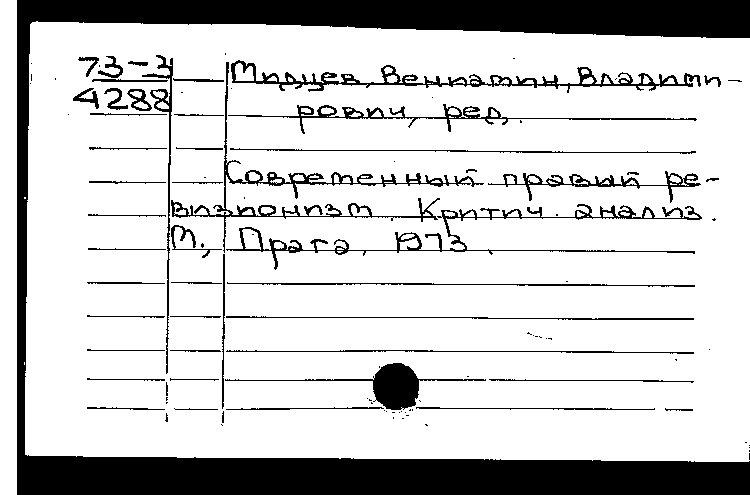 73-3
4288
Мидцев, Вениамин, Владими-
рович, ред.
Современный правый ре-
визионизм. Критич. анализ.
М., Прага, 1973.